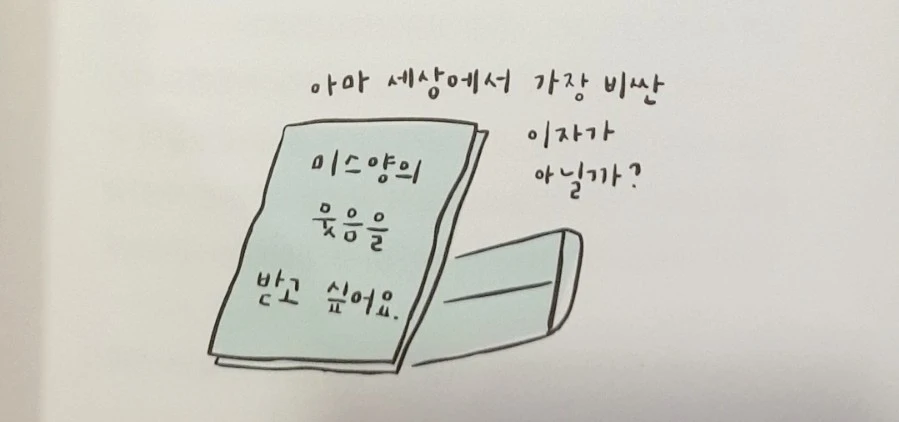 아마 세상에서 가장 비싼
이자가
아닐까?
미스양의
웃음을
받고 싶어요.